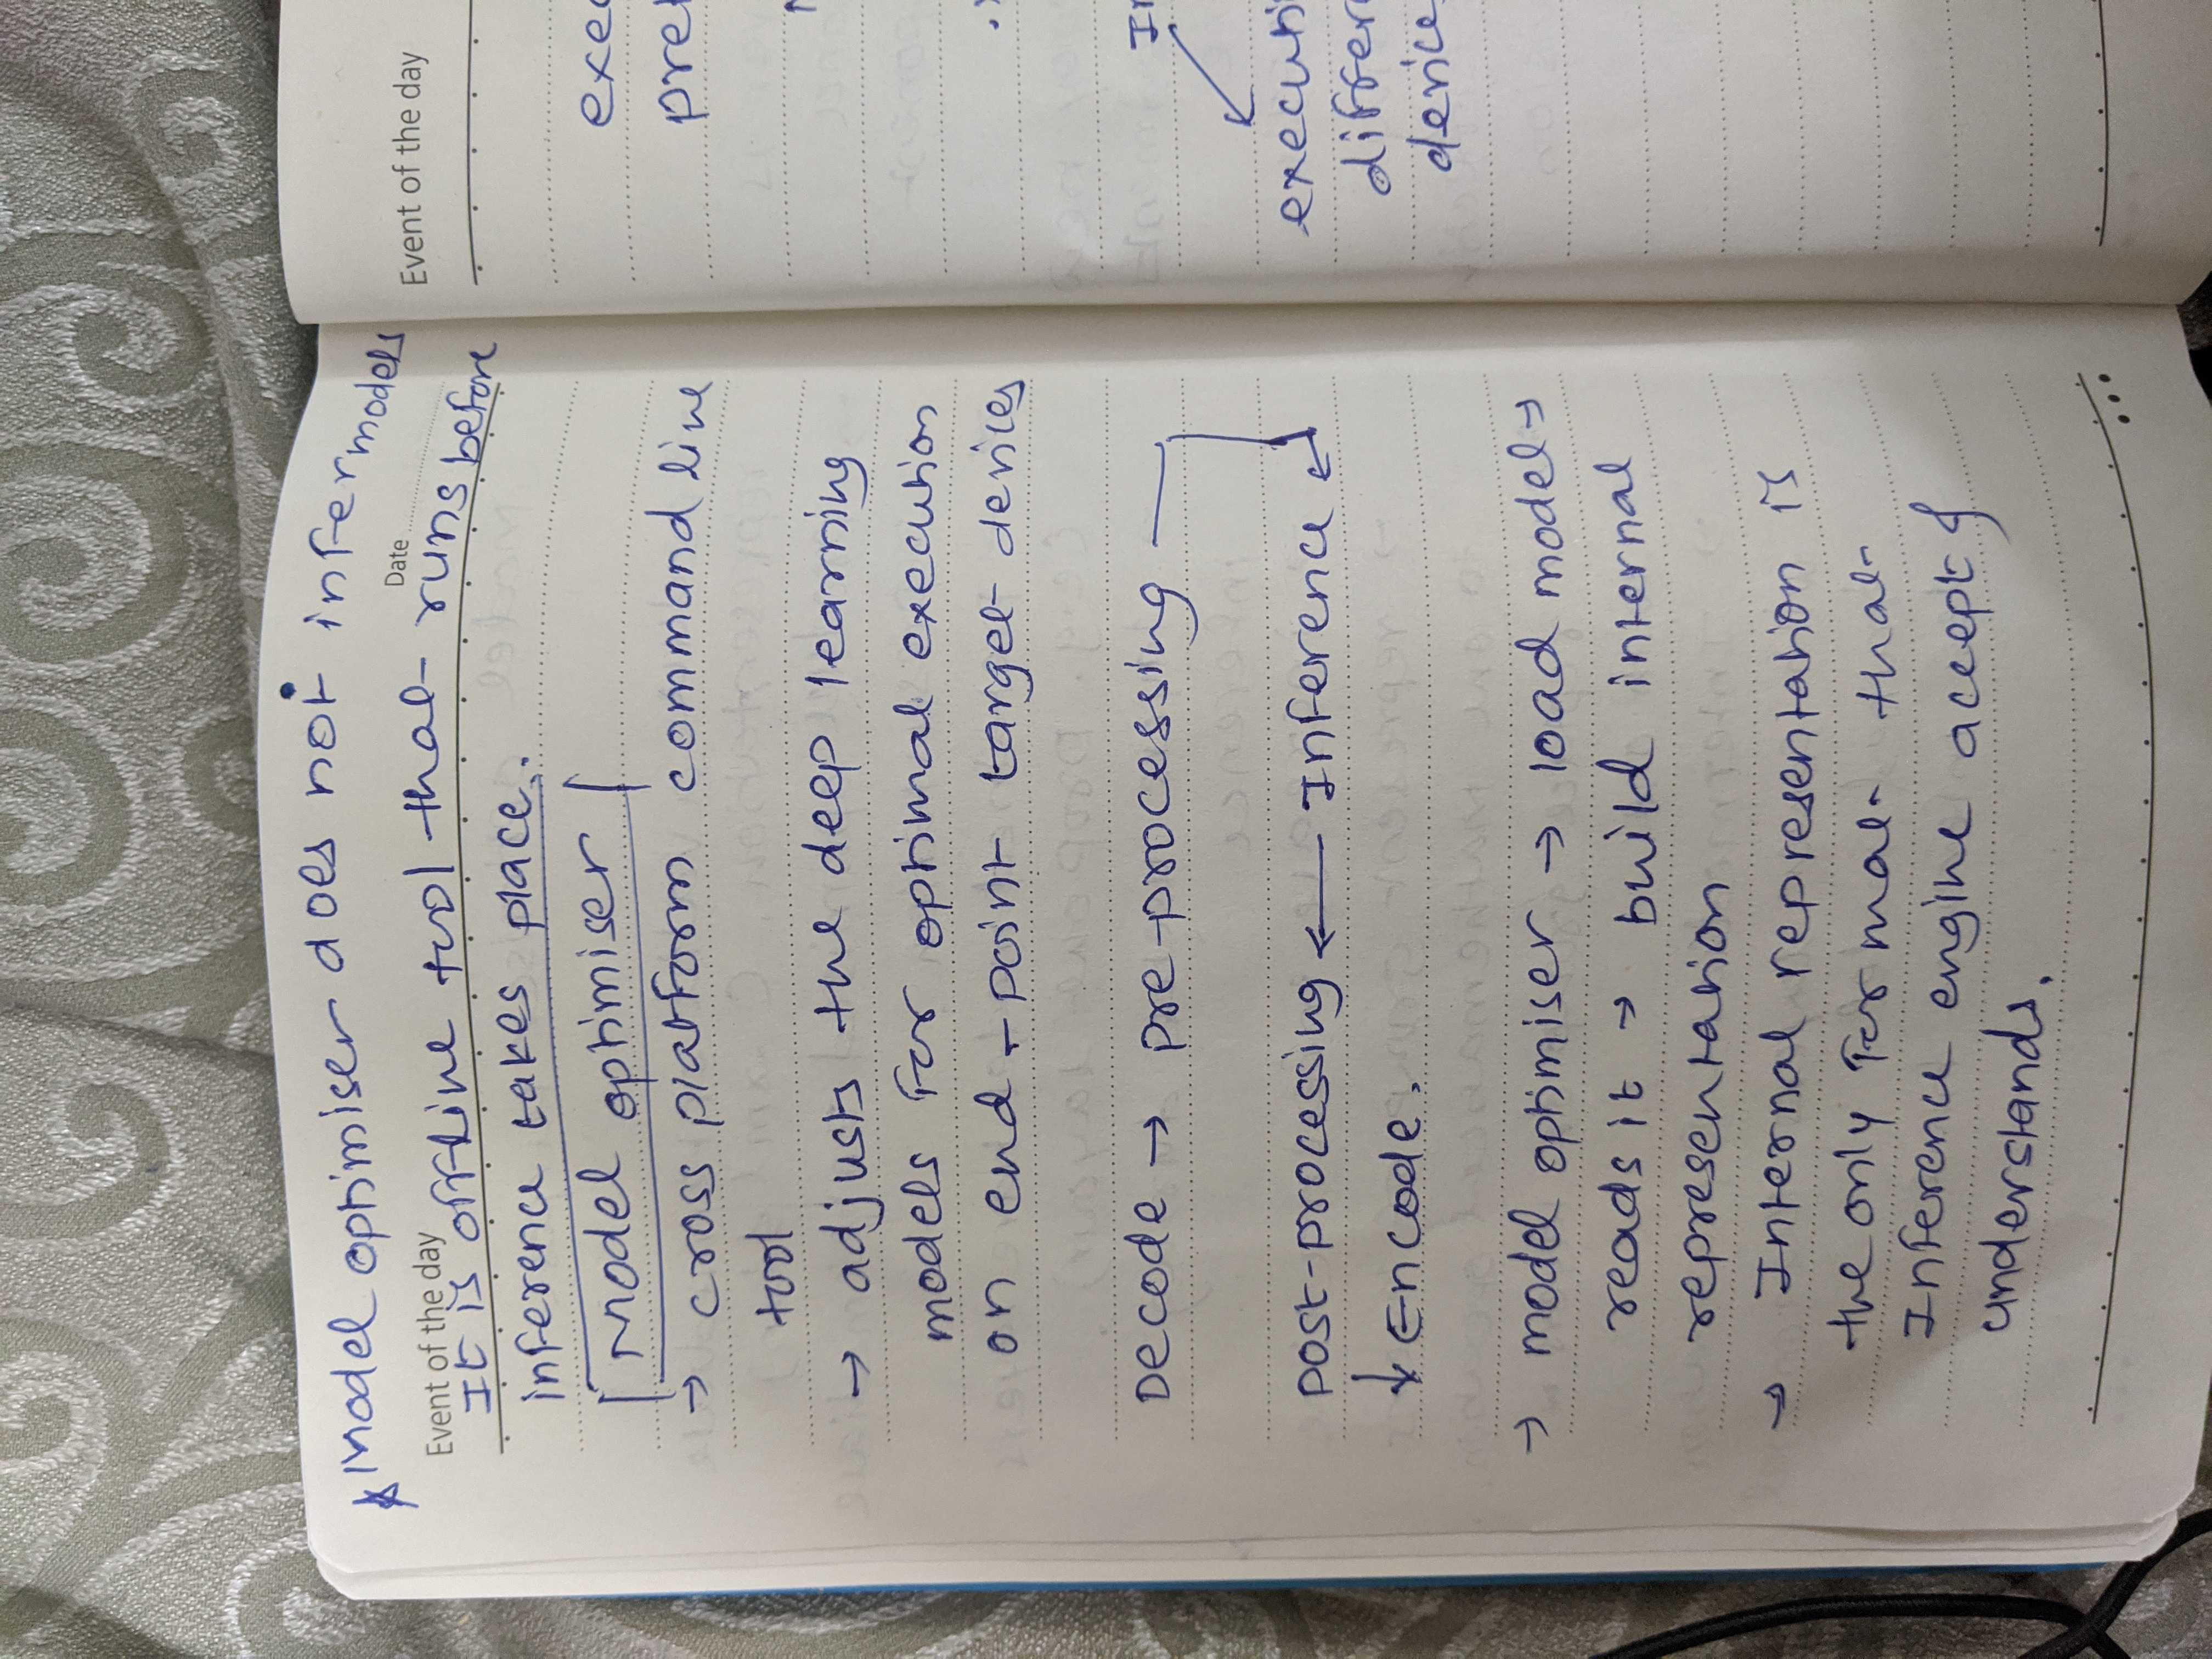 * Model optimiser does not infer models
Event of the day
Date
It is offline tool that runs before
inference takes place.
Model optimiser
→ cross platform command line
tool
→ adjusts the deep learning
models for optimal execution
on end-point target devices
Decode → pre-processing
post-processing ← Inference ↵
↓ Encode.
→ model optimiser → load model →
reads it → build internal
representation
→ Internal representation is
the only format that
Inference engine accept &
understands.
Event of the day
executi
differ
device